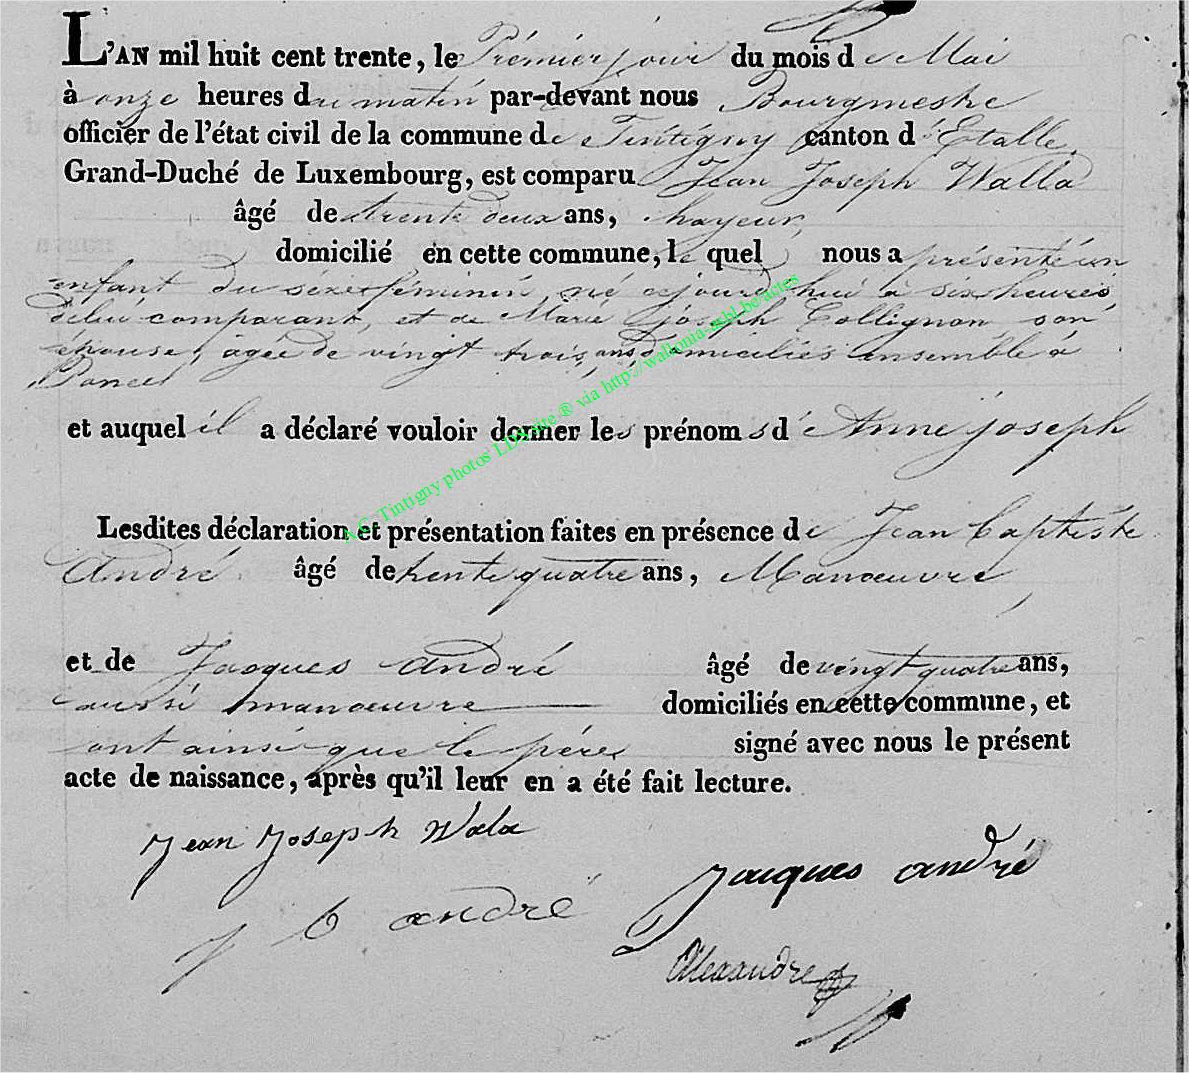 L'AN mil huit cent trente, le Prémier jour du mois de Mai
à onze heures du matin par-devant nous Bourgmestre
officier de l'état civil de la commune de Tintigny canton d'Etalle,
Grand-Duché de Luxembourg, est comparu Jean Joseph Walla
âgé de trente deux ans,
domicilié en cette commune, le quel nous a présenté un
enfant du séxe féminin, né cejourd'hui à six heures,
de lui comparant, et de Marie Joseph Collignon son
épouse, agée de vingt trois ans, domiciliés ensemble à
Poncel
et auquel il a déclaré vouloir donner les prénoms d'Anne joseph
Lesdites déclaration et présentation faites en présence de Jean Baptiste
André âgé de trente quatre ans, Manœuvre
et de Jacques André âgé de vingt quatre ans,
aussi manœuvre domiciliés en cette commune, et
ont ainsi que le pére signé avec nous le présent
acte de naissance, après qu'il leur en a été fait lecture.
Jean Joseph Wala
Jacques andré
J b andré
Alexandre
A.C. Tintigny photos LDS site ® via http://wallonia-asbl.be/actes